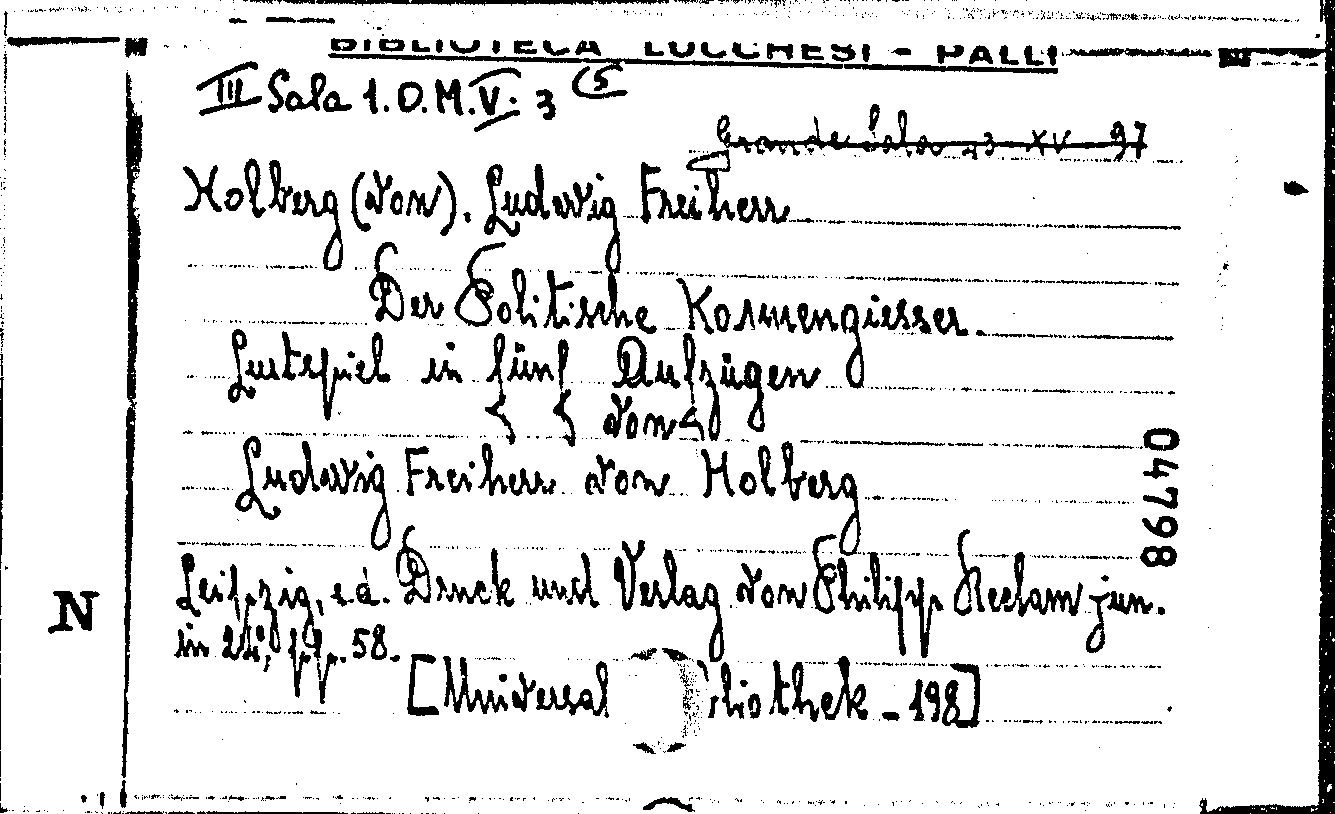 BIBLIOTECA LUCCHESI - PALLI
III Sala 1.O.M.V. 3 (5
Grande Sala 23 XV 97
Holberg (von). Ludwig Freiherr
Der Politische Kormengiesser.
Lutspiel in fünf Aufzügen
von
Ludwig Freiherr von Holberg
04798
Leipzig, s.d. Druck und Verlag von Philipp Reclam jun.
in 24°, pp. 58.
N
[Universal bliothek - 198]